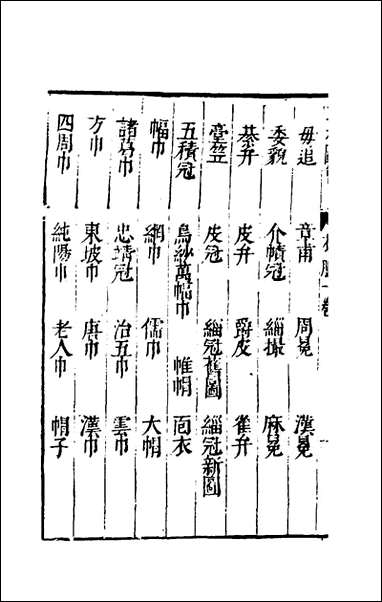 毋追 章甫 周冕 漢冕
委貌 介幘冠 緇撮 麻冕
綦弁 皮弁 爵皮 雀弁
臺笠 皮冠 緇冠舊圖 緇冠新圖
五積冠 烏紗萬幅巾 帷帽 面衣
幅巾 網巾 儒巾 大帽
諸葛巾 忠靖冠 治五巾 雲巾
方巾 東坡巾 唐巾 漢巾
四周巾 純陽巾 老人巾 帽子